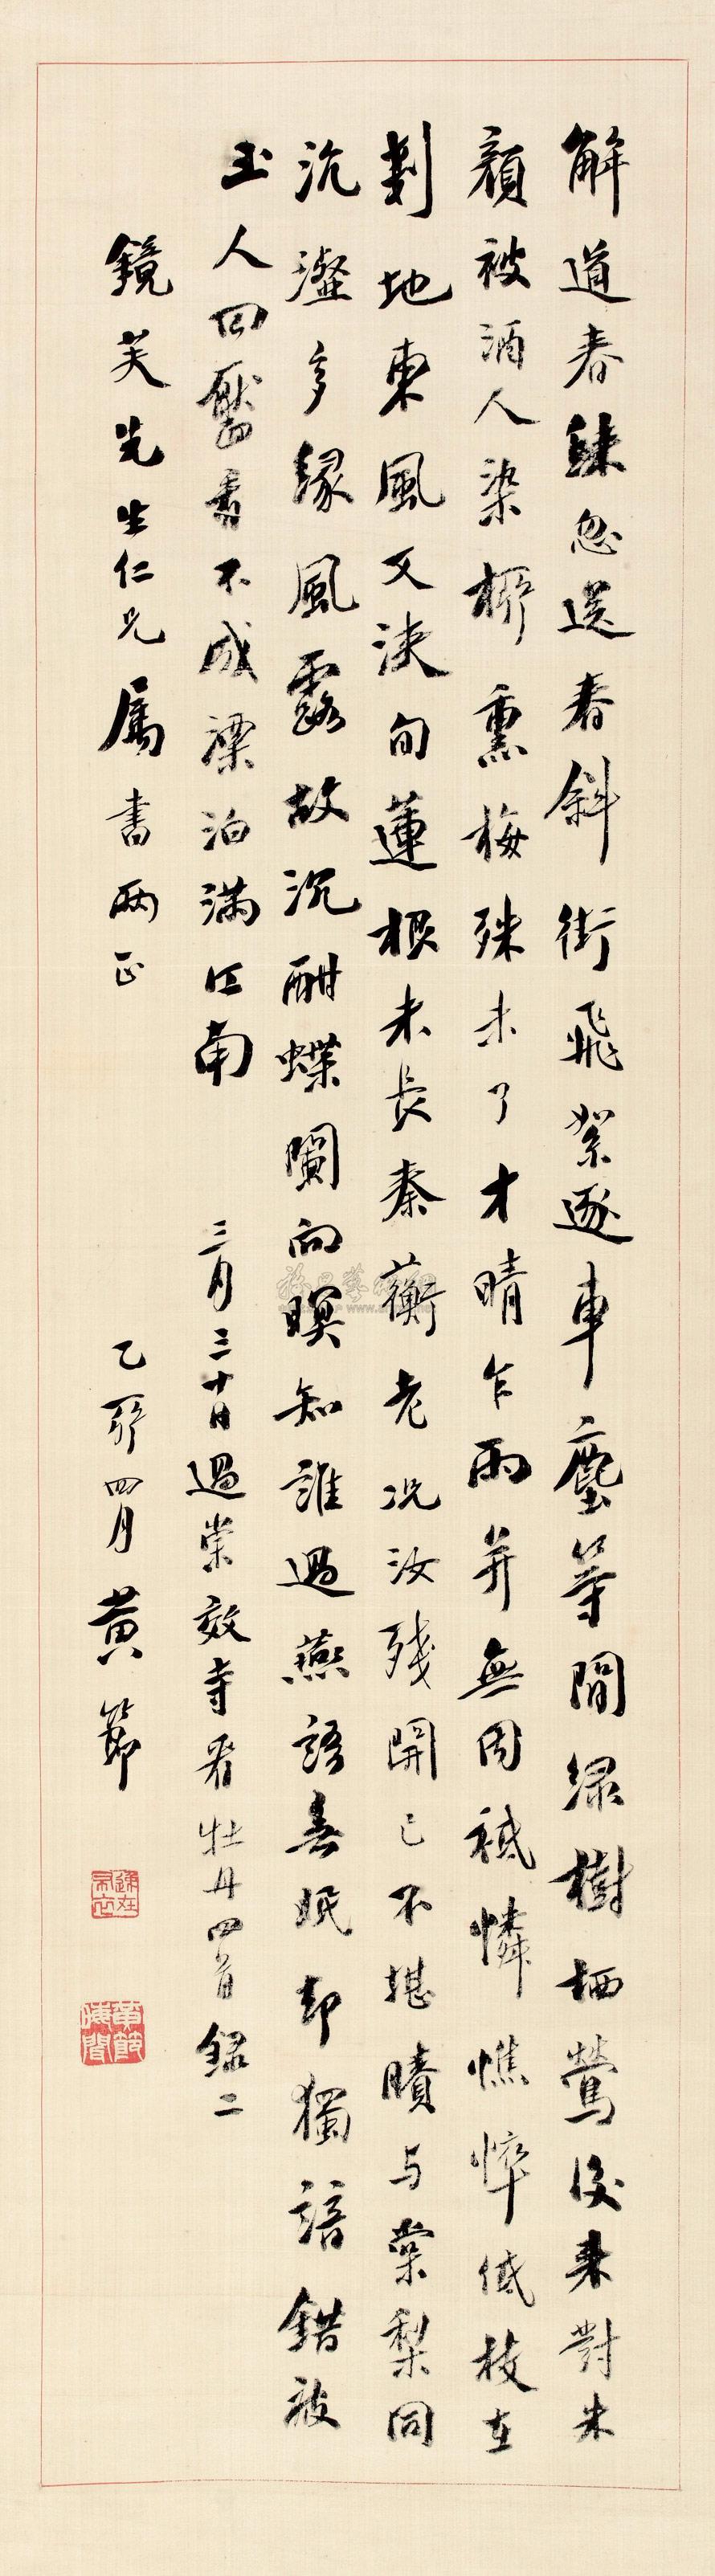 解道春殊忽送春斜街飛絮逐車塵等閒綠樹栖鶯後來對朱
顏被酒人染柳熏梅殊未了才晴乍雨并無因祗憐憔悴低枝在
剗地東風又浹旬蓮根未長秦蘅老况汝殘開已不堪賸與棠梨同
沆瀣多緣風露故沉酣蝶闌向暝知誰過燕語無
却獨諳錯被
玉人回
看不成漂泊滿江南
三月三十日過崇效寺看牡丹四首錄二
鏡芙先生仁兄屬書兩正
乙亥四月黃節
黃節